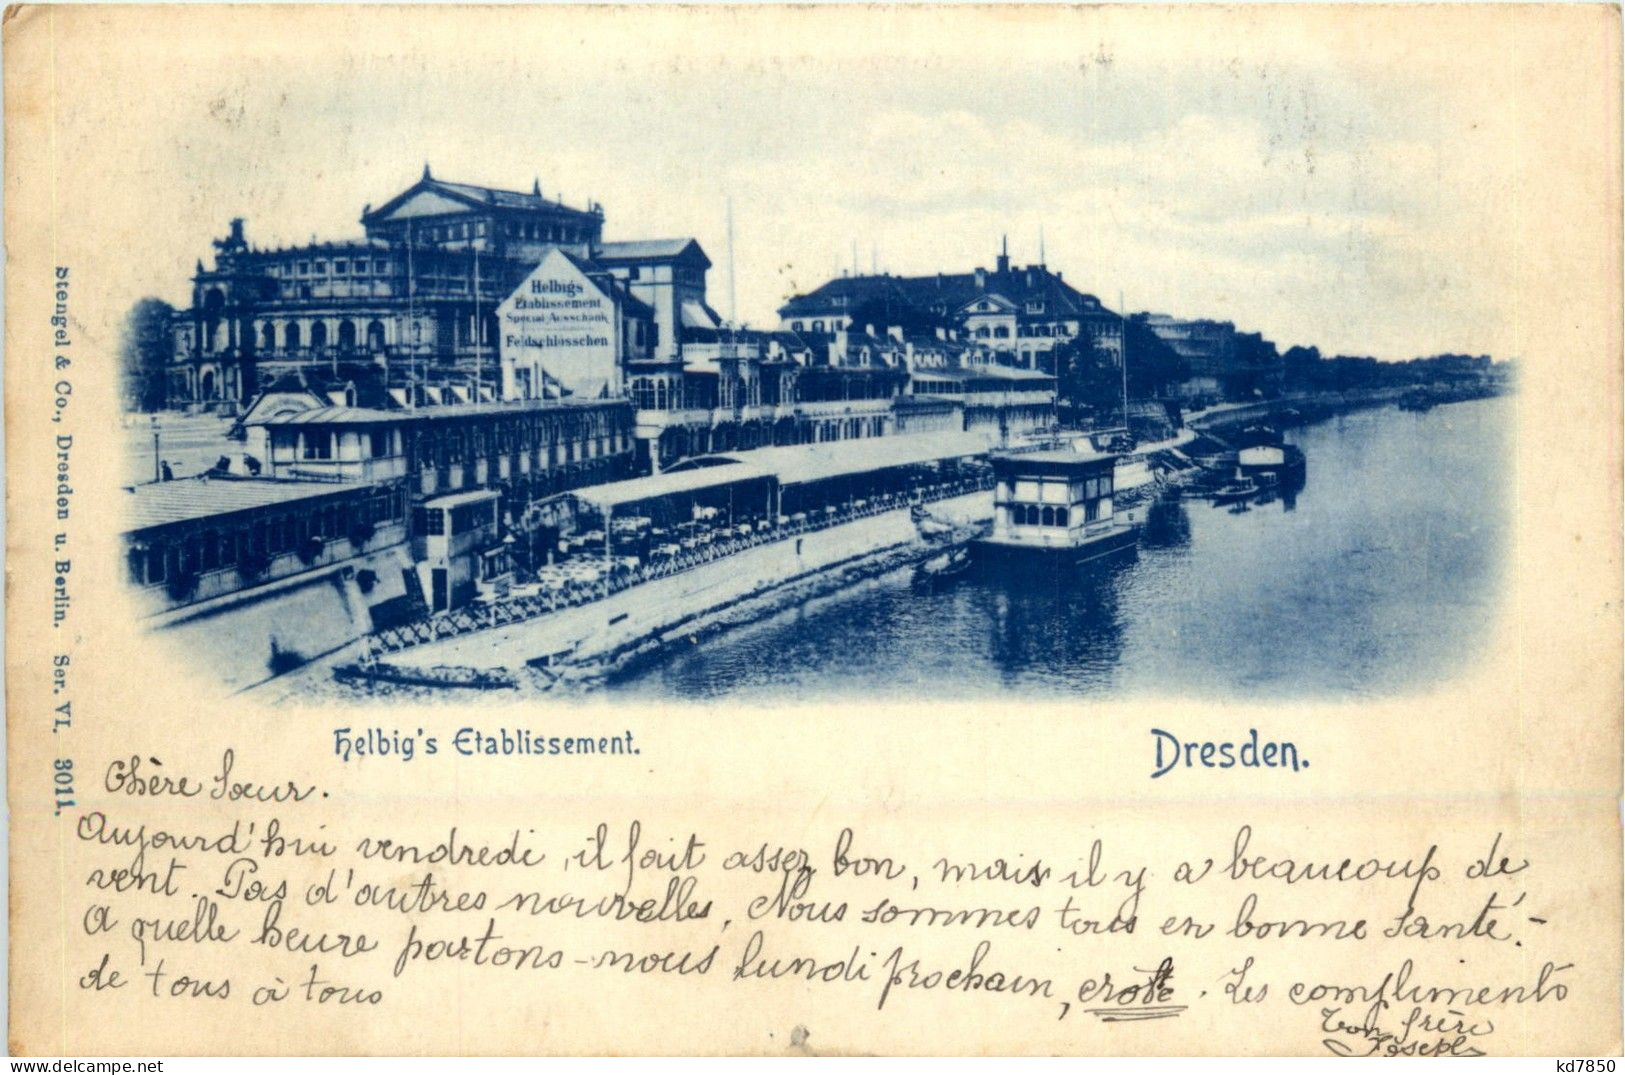 Helbig's
Etablissement
Special-Ausschank
Feldschlösschen
Stengel & Co., Dresden u. Berlin. Ser. VI. 3011.
Helbig's Etablissement.
Dresden.
Chère Sœur.
Aujourd'hui vendredi, il fait assez bon, mais il y a beaucoup de
vent. Pas d'autres nouvelles. Nous sommes tous en bonne santé.-
A quelle heure partons-nous lundi prochain, crotte. Les compliments
de tous à tous
Ton frère
Joseph
kd7850